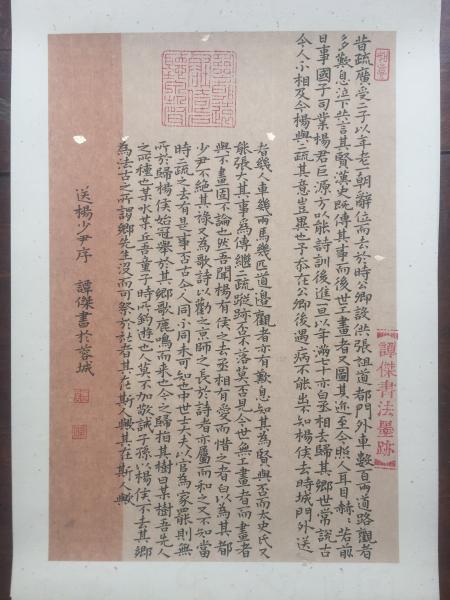 昔疏廣受二子以年老一朝辭位而去於時公卿設供張祖道都門外車數百兩道路觀者
多歎息泣下共言其賢漢史既傳其事而後世工畫者又圖其迹至今照人耳目赫〻若前
日事國子司業楊君巨源方以能詩訓後進一旦以年滿七十亦白丞相去歸其鄉世常說古
今人不相及今楊與二疏其意豈異也予忝在公卿後遇病不能出不知楊侯去時城門外送
者幾人車幾兩馬幾匹道邊觀者亦有歎息知其為賢與否而太史氏又
能張大其事為傳繼二疏蹤跡否不落莫否見今世無工畫者而畫
與不畫固不論也然吾聞楊侯之去丞相有愛而惜之者白以為其都
少尹不絕其祿又為歌詩以勸之京師之長於詩者亦屬而和之又不知當
時二疏之去有是事否古今人同不同未可知也中世士大夫以官為家罷則無
所於歸楊侯始冠舉於其鄉歌鹿鳴而來也今之歸指其樹曰某樹吾先人
之所種也某水某丘吾童子時所釣遊也人莫不加敬誡子孫以楊侯不去其鄉
為法古之所謂鄉先生沒而可祭於社者其在斯人歟其在斯人歟
送楊少尹序 譚傑書於蓉城
譚傑書法墨跡